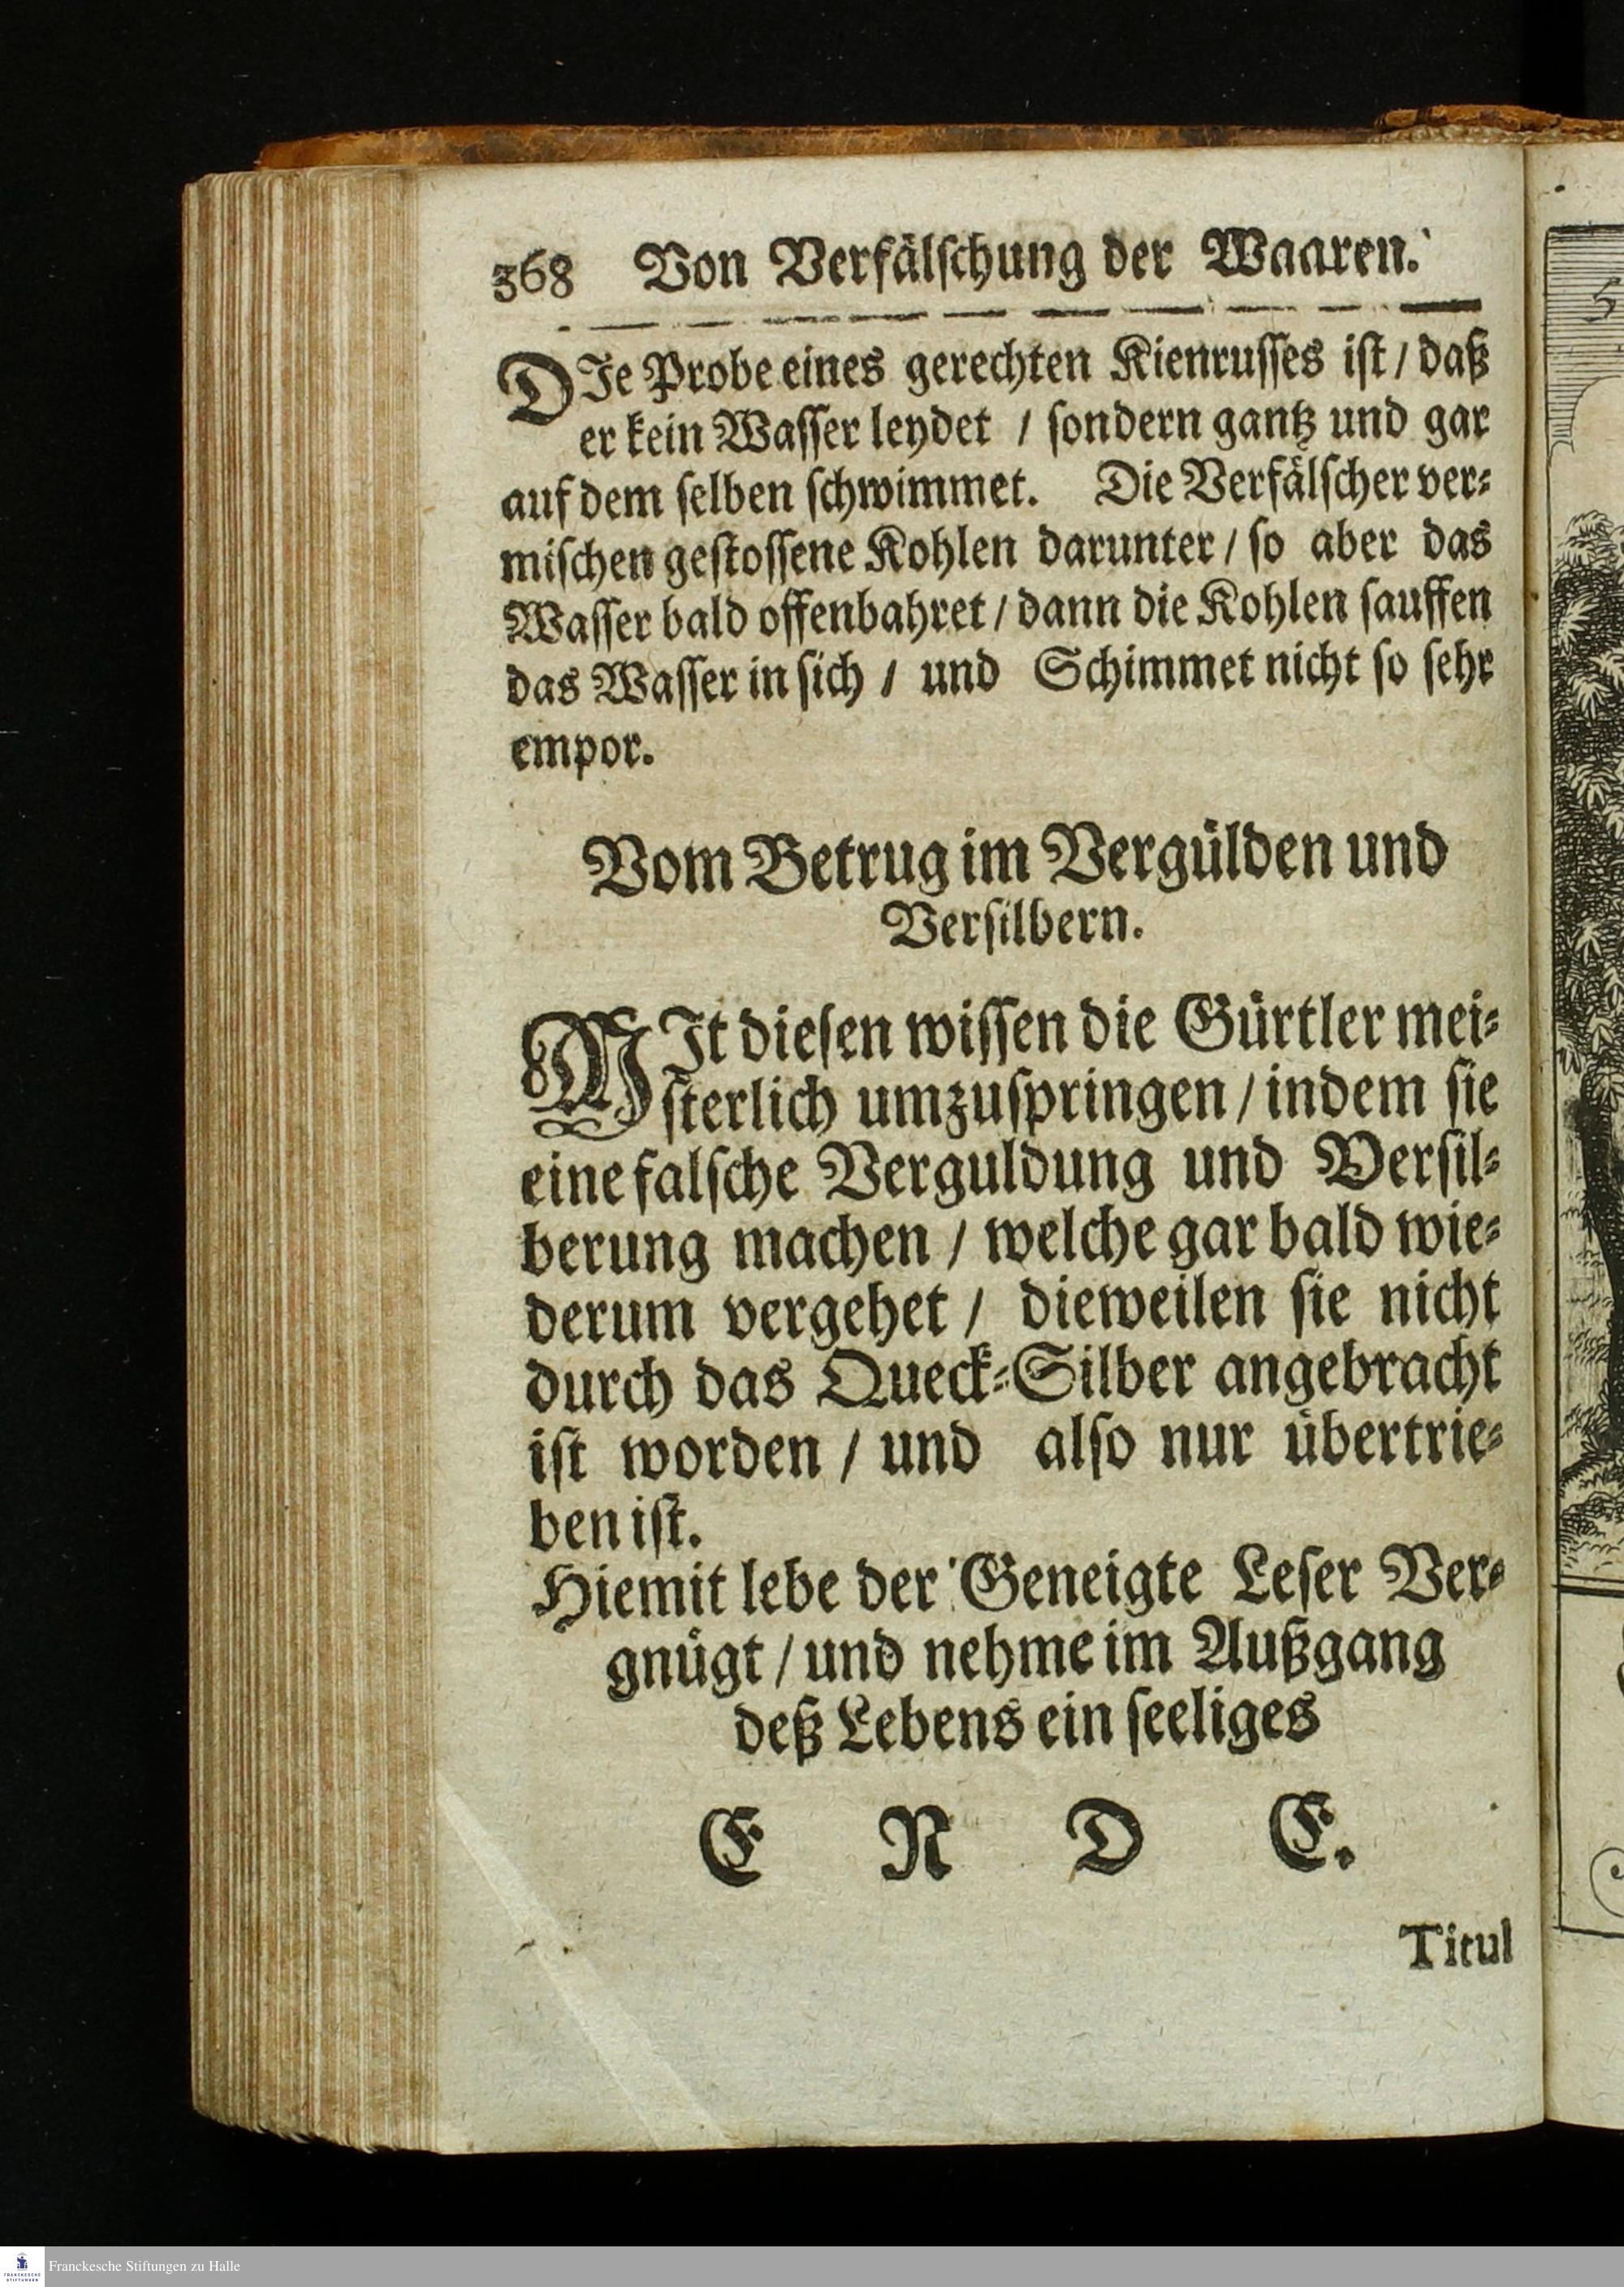 368 Von Verfälschung der Waaren.
DIe Probe eines gerechten Kienrusses ist / daß
er kein Wasser leydet / sondern gantz und gar
auf dem selben schwimmet. Die Verfälscher ver-
mischen gestossene Kohlen darunter / so aber das
Wasser bald offenbahret / dann die Kohlen sauffen
das Wasser in sich / und Schimmet nicht so sehr
empor.
Vom Betrug im Vergülden und
Versilbern.
MIt diesen wissen die Gürtler mei-
sterlich umzuspringen / indem sie
eine falsche Verguldung und Versil-
berung machen / welche gar bald wie-
derum vergehet / dieweilen sie nicht
durch das Queck-Silber angebracht
ist worden / und also nur übertrie-
ben ist.
Hiemit lebe der Geneigte Leser Ver-
gnügt / und nehme im Außgang
deß Lebens ein seeliges
E N D E.
Titul
FRANCKESCHE
STIFTUNGEN
Franckesche Stiftungen zu Halle